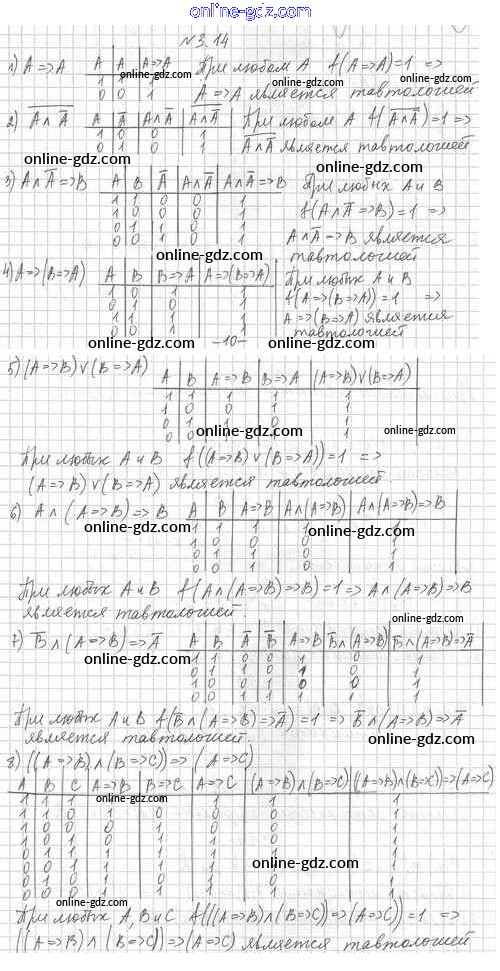 online-gdz.com
№3.14
1) A=>A
A A A=>A
1 1 1
0 0 1
При любом A f(A=>A)=1 =>
A=>A является тавтологией
online-gdz.com
2) A∧A̅
A A̅ A∧A̅ A∧A̅
1 0 0 1
0 1 0 1
При любом A f(A∧A̅)=1=>
A∧A̅ является тавтологией
online-gdz.com
3) A∧A̅=>B
A B A̅ A∧A̅ A∧A̅=>B
1 1 0 0 1
1 0 0 0 1
0 1 1 0 1
0 0 1 0 1
При любых A и B
f(A∧A̅=>B)=1 =>
A∧A̅=>B является
тавтологией
online-gdz.com
4) A=>(B=>A)
A B B=>A A=>(B=>A)
1 0 1 1
0 1 0 1
1 1 1 1
0 0 1 1
При любых A и B
f(A=>(B=>A))=1 =>
A=>(B=>A) является
тавтологией
online-gdz.com
-10-
5) (A=>B)∨(B=>A)
A B A=>B B=>A (A=>B)∨(B=>A)
1 1 1 1 1
1 0 0 1 1
0 1 1
online-gdz.com
При любых A и B f((A=>B)∨(B=>A))=1 =>
(A=>B)∨(B=>A) является тавтологией
online-gdz.com
6) A∧(A=>B)=>B
A B A=>B A∧(A=>B) A∧(A=>B)=>B
1 1 1 1 1
1 0 0 0 1
0 1 1 0 1
0 0 1 0 1
online-gdz.com
При любых A и B f(A∧(A=>B)=>B)=1=> A∧(A=>B)=>B
является тавтологией.
online-gdz.com
7) B̅∧(A=>B)=>A̅
A B A̅ B̅ A=>B B̅∧(A=>B) B̅∧(A=>B)=>A̅
1 1 0 0 1 0 1
0 1 1 0 1 0 1
1 0 0 1 0 0 1
0 0 1 1 1 1 1
online-gdz.com
При любых A и B f(B̅∧(A=>B)=>A̅)=1 => B̅∧(A=>B)=>A̅
является тавтологией.
online-gdz.com
8) ((A=>B)∧(B=>C))=>(A=>C)
A B C A=>B B=>C A=>C (A=>B)∧(B=>C) ((A=>B)∧(B=>C))=>(A=>C)
1 1 1 1 1
1 1 0 1 0 0 0 1
online-gdz.com
При любых A, B и C f(((A=>B)∧(B=>C))=>(A=>C))=1 =>
((A=>B)∧(B=>C))=>(A=>C) является тавтологией
online-gdz.com